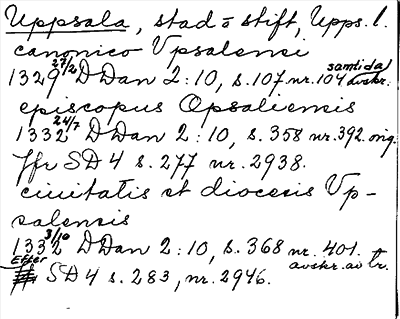 Uppsala, stad o stift, Upps. l.
canonico Vpsalensi
1329 27/2 D Dan 2:10, s. 107 nr. 104 samtida avskr.
episcopus Opsaliensis
1332 24/7 D Dan 2:10, s. 358 nr. 392 orig.
Jfr SD 4 s. 277 nr. 2938.
ciuitatis et diocesis Vp-
salensis
1332 3/10 D Dan 2:10, s. 368 nr. 401. avskr. av tr.
Efter SD 4 s. 283, nr. 2946.